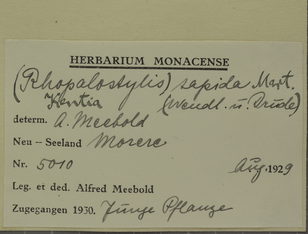 HERBARIUM MONACENSE
(Rhopalostylis) sapida Mart.
Kentia (Wendl. u. Drude)
determ. A. Meebold
Neu – Seeland Morere
Nr. 5010 Aug. 1929
Leg. et ded. Alfred Meebold
Zugegangen 1930. Junge Pflanze